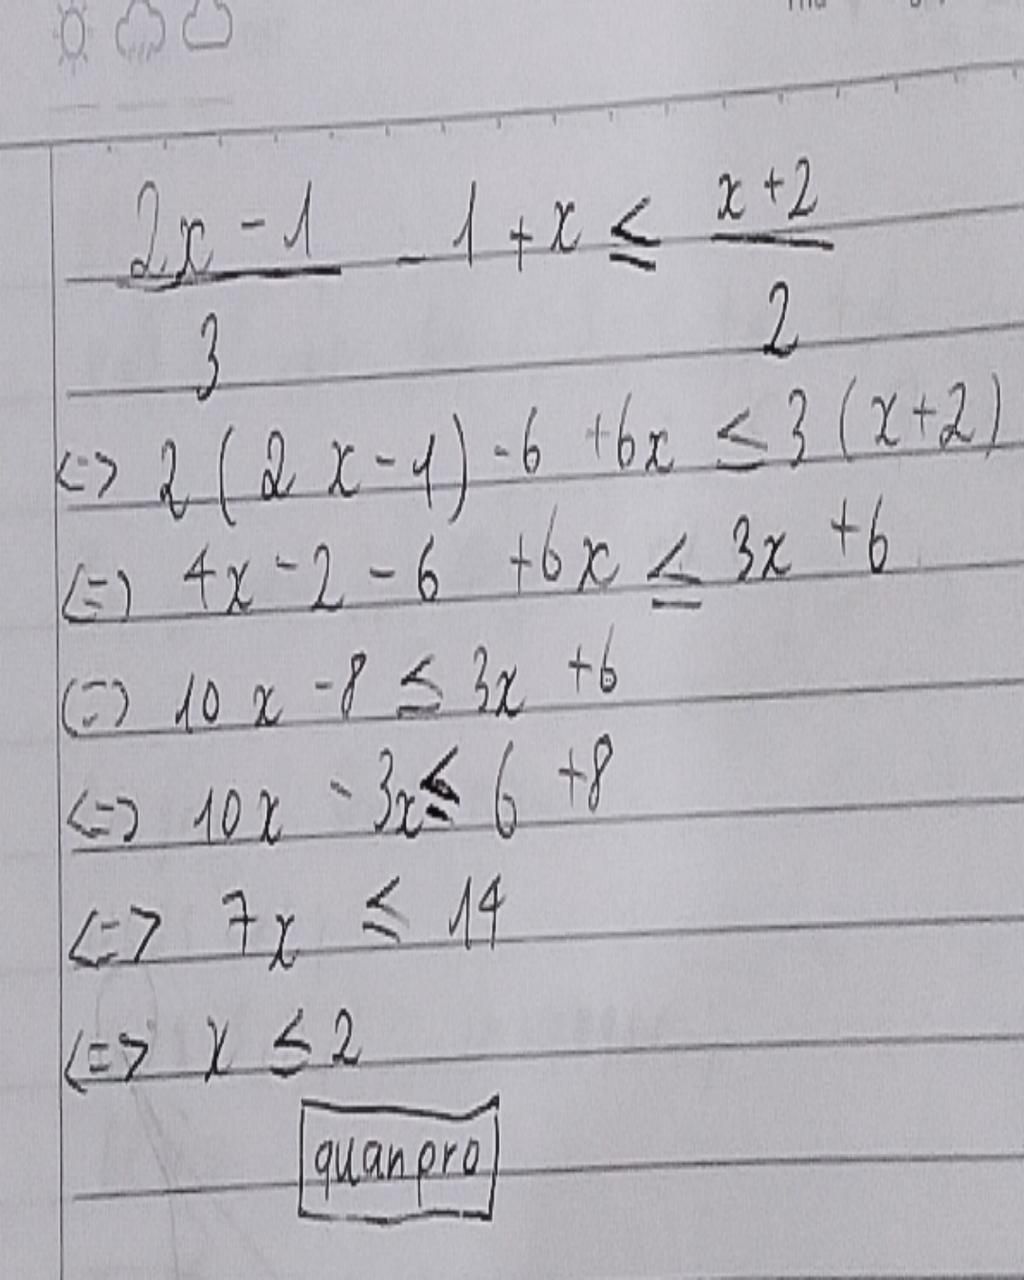 (2x - 1)/3 - 1 + x ≤ (x + 2)/2
<=> 2 ( 2 x - 1 ) - 6 + 6x ≤ 3 ( x + 2 )
<=> 4x - 2 - 6 + 6x ≤ 3x + 6
<=> 10 x - 8 ≤ 3x + 6
<=> 10x - 3x ≤ 6 + 8
<=> 7x ≤ 14
<=> x ≤ 2
quanpro